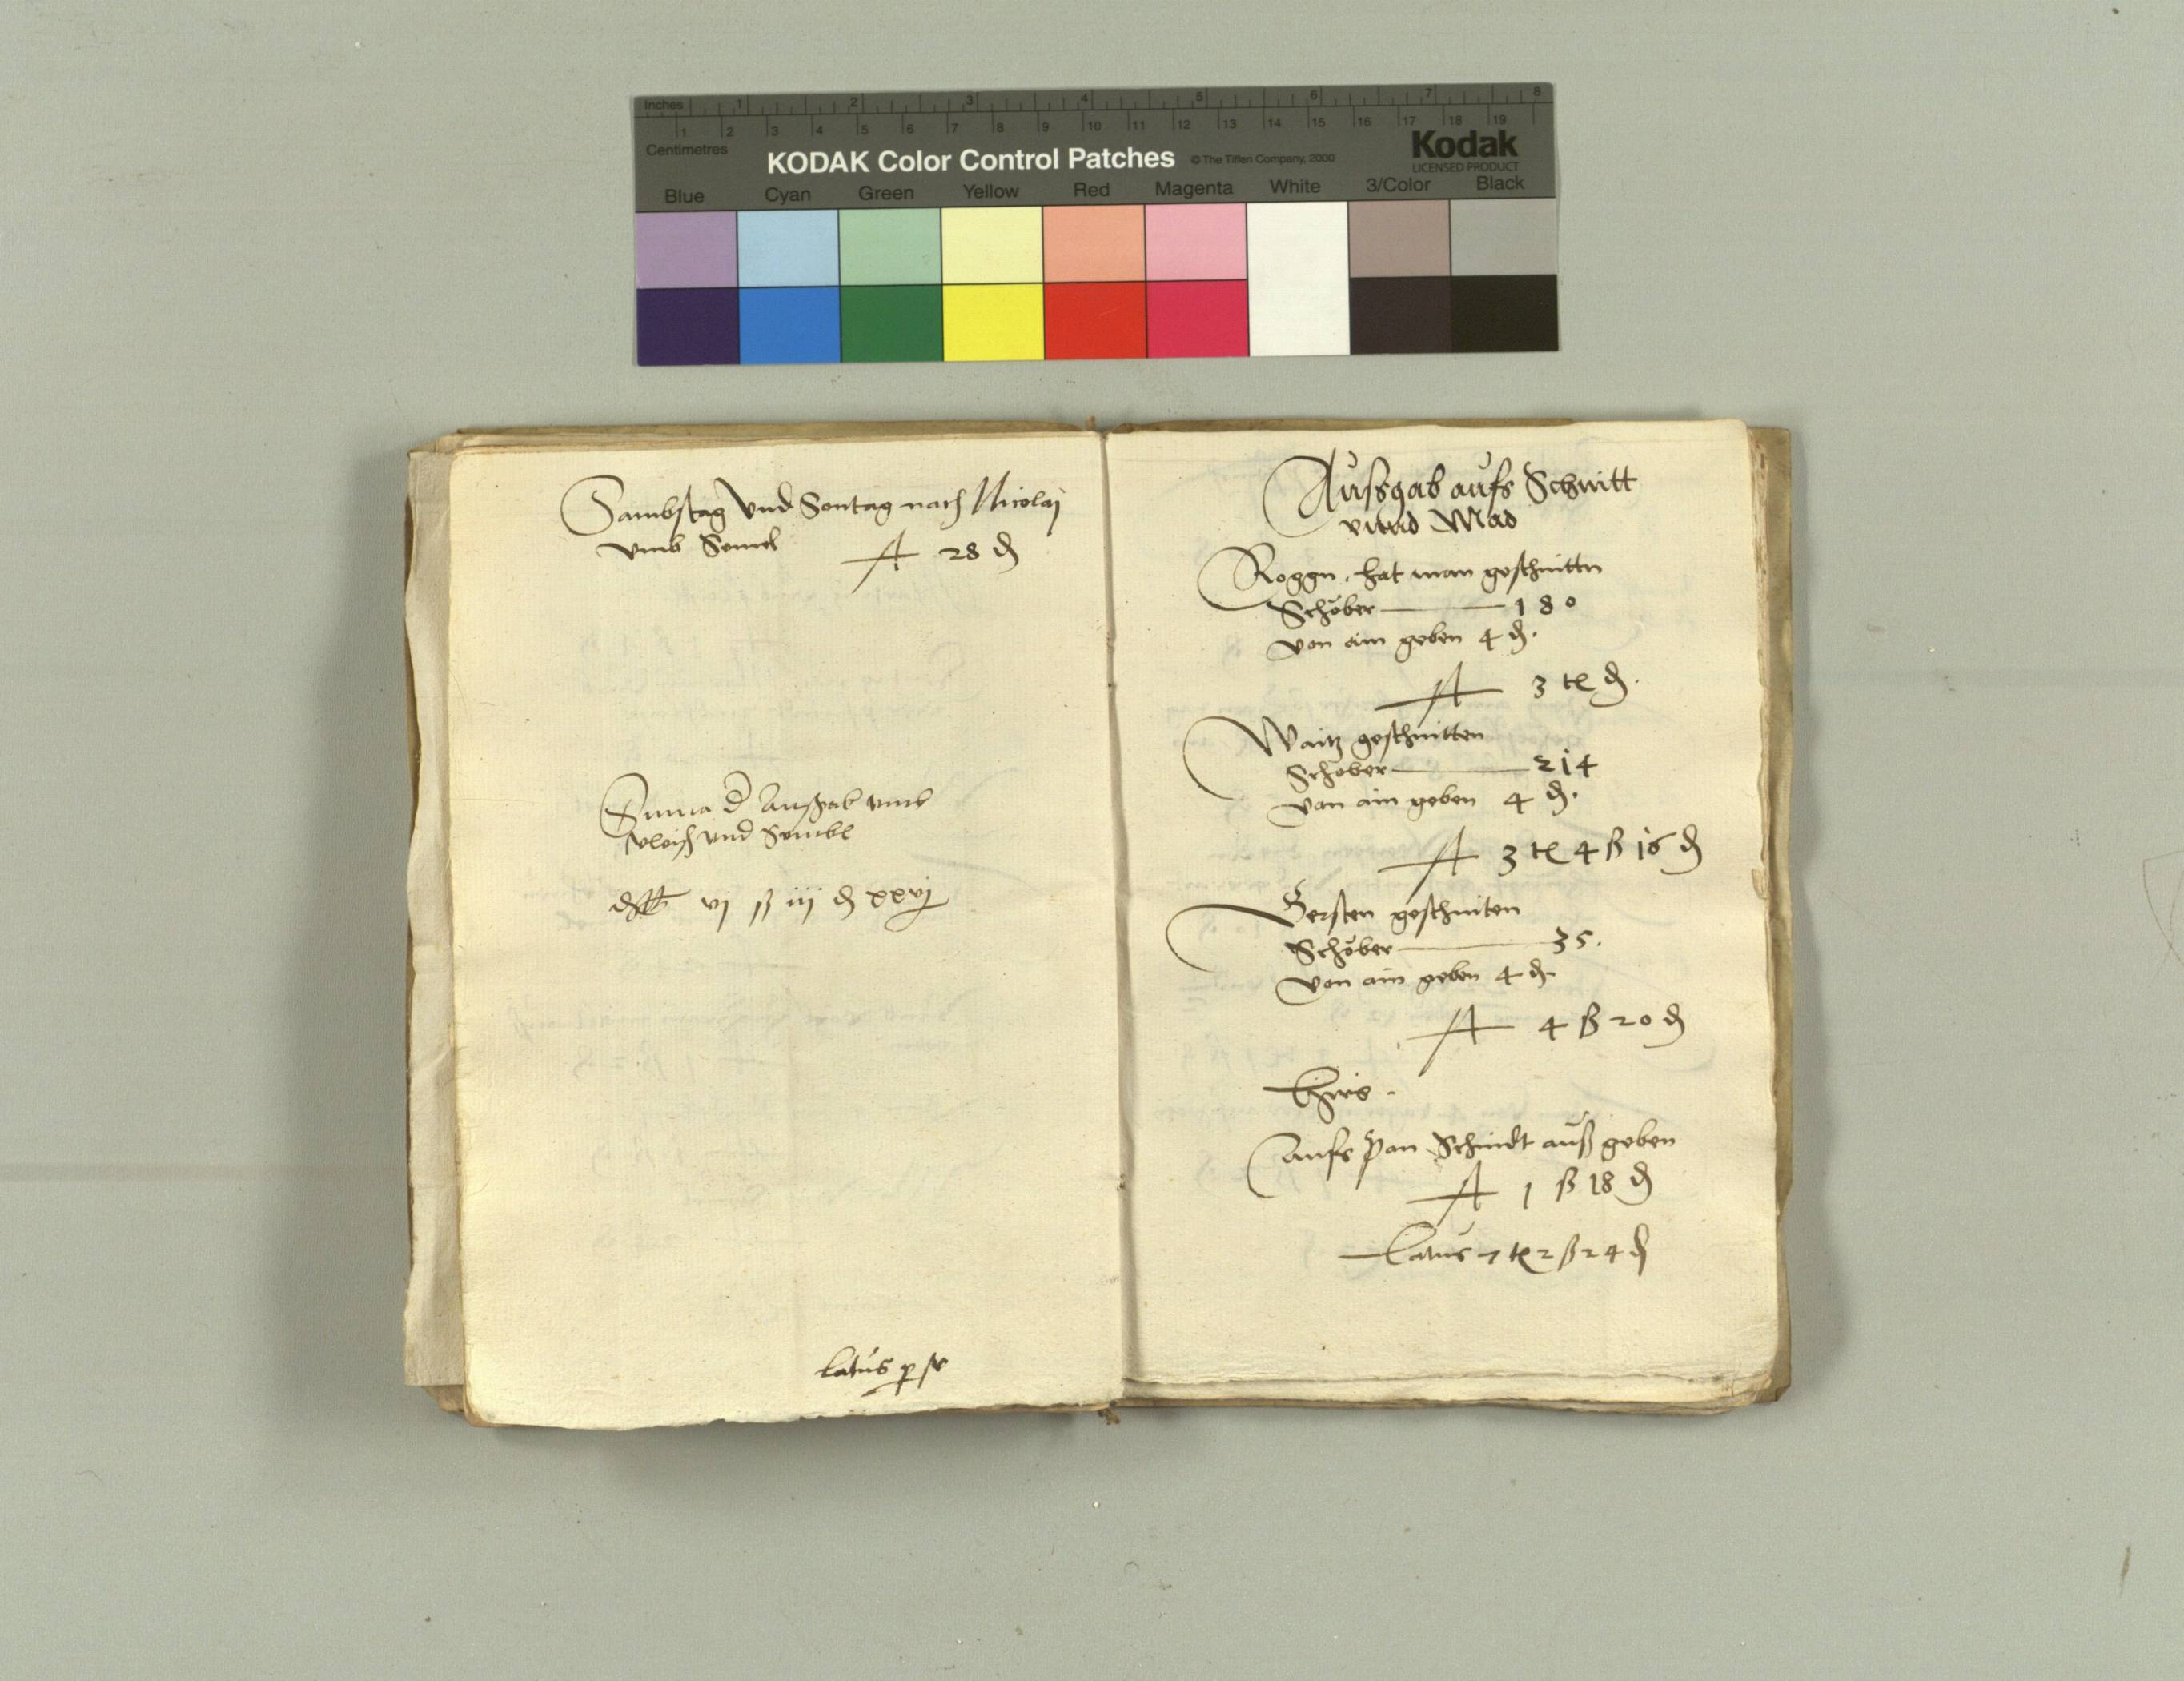 Inches 1 2 3 4 5 6 7 8
1 2 3 4 5 6 7 8 9 10 11 12 13 14 15 16 17 18 19
Centimetres
KODAK Color Control Patches © The Tiffen Company, 2000 Kodak
LICENSED PRODUCT
Blue Cyan Green Yellow Red Magenta White 3/Color Black
Sambstag vnd Sontag nach Nicolaj
vmb Semel A 28 ₰
Suma d Ausgab vmb
vleisch vnd Sembl
vj ß iij ₰ xxvj
latus p se
Aussgab aufs Schnitt
vnnd Mad
Roggn hat man geschnittn
Schöber 180
von aim geben 4 ₰.
A 3 ℔ ₰.
Waitz geschnitten
Schober 214
von aim geben 4 ₰.
A 3 ℔ 4 ß 16 ₰
Gersten geschniten
Schöber 35.
von aim geben 4 ₰.
A 4 ß 20 ₰
Hirs.
Aufs pan Schnidt auß geben
A 1 ß 18 ₰
Latus 7 ℔ 2 ß 24 ₰